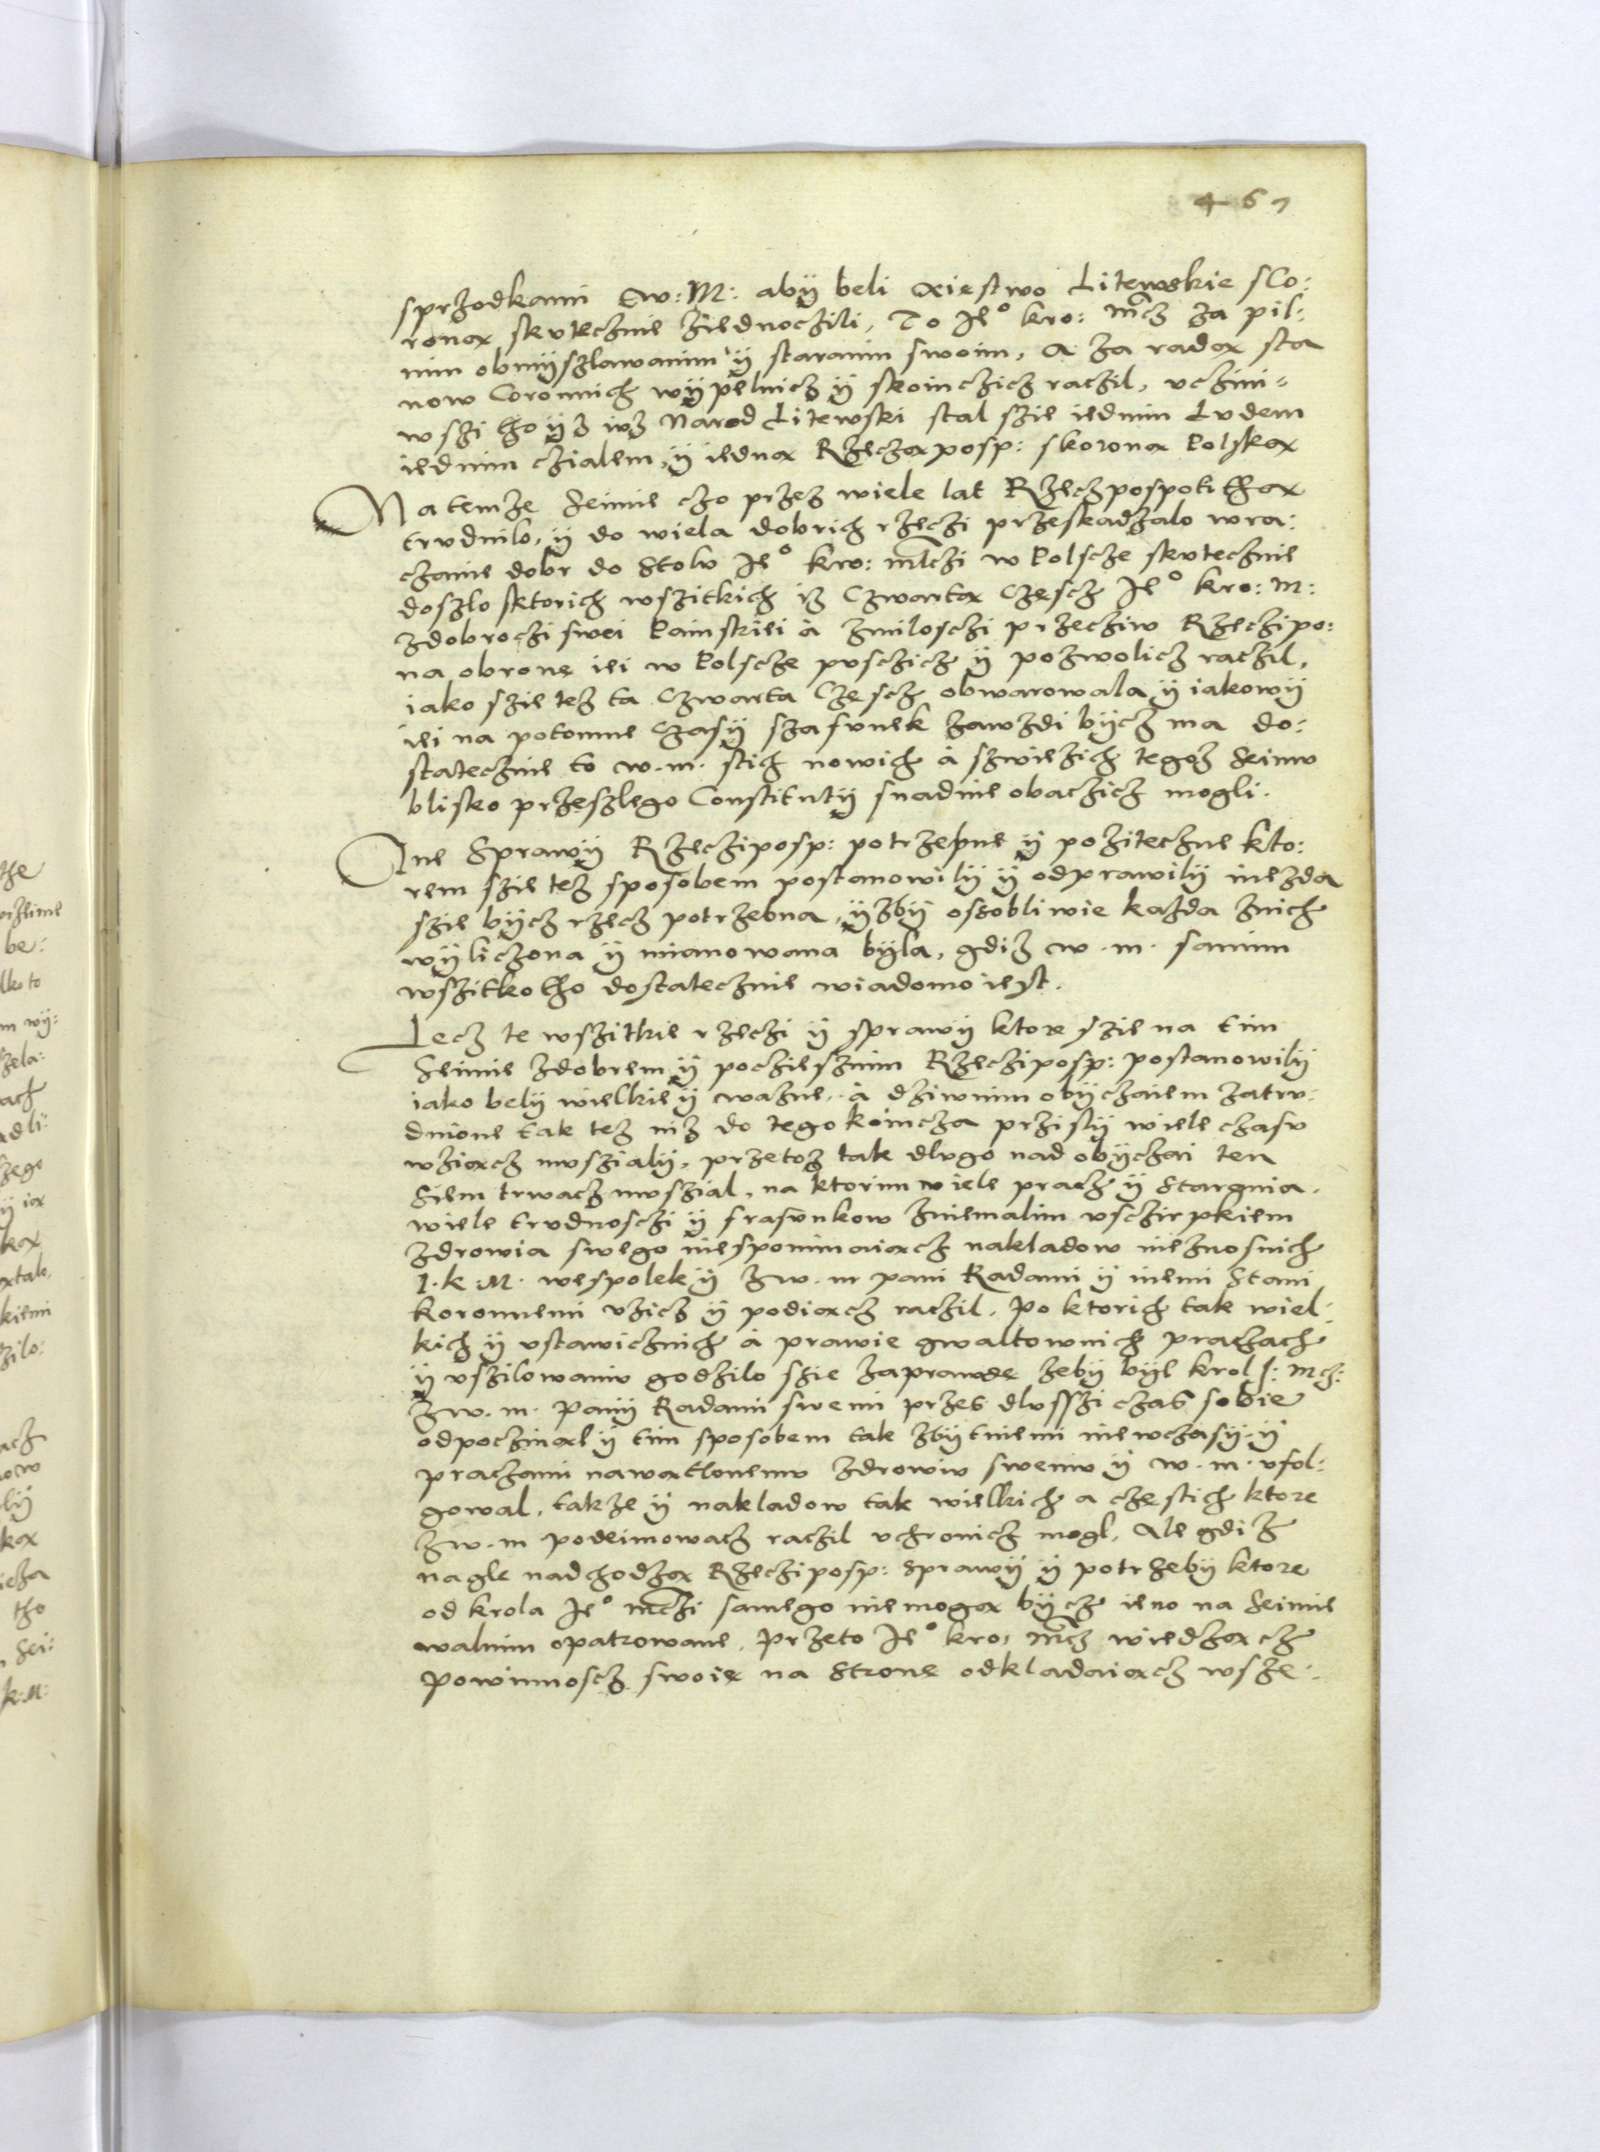 467
sprzodkami Ew: M: abÿ beli xięstwo Litewskie sCo:
ronax skutecznie ziednoczili, To Je° kro: mcz za pil:
nim obmÿszlawanim ÿ staranim swoim, A za radax sta
now Coronnich wÿpelnicz ÿ skoinczicz raczil, vczini=
wszi tho ÿz iusz Narod Litewski stal szie iednim Ludem
iednim czialem, ÿ iednax Rzeczax posp: skoronax Polskax
Na temze Seimie czo przez wiele lat Rzeczpospolithax
trudnilo, ÿ do wiela dobrich rzeczi przeskadzalo wra:
czanie dobr do Stolu Je° kro: mczi w Polscze skutecznie
doszlo sktorich wszitkich isz Czwartax Częscz Je° kro: M:
zdobroczi swei Painskiei à zmiloschi przecziw Rzeczipo:
na obronę iei w Polscze pusczicz ÿ pozwolicz raczil,
iako szie tez ta Czwarta Częscz obwarowala ÿ iakowÿ
iei na potomne Czasÿ szafunek zawzdi bÿcz ma do:
statecznie to w. m. stich nowich à szwiezich tegoz Seimu
blisko przeszlego Constitutÿ snadnie obaczicz mogli.
Ine Sprawÿ Rzecziposp: potrzebne ÿ poziteczne kto:
rem szie tez sposobem postanowilÿ ÿ odprawilÿ niezda
szie bÿcz rzecz potrzebna, ÿzbÿ ossobliwie kazda znich
wÿliczona ÿ mianowana bÿla, gdiz w. m. samim
wszitko tho dostatecznie wiadomo iest.
Lecz te wszitkie rzeczi ÿ sprawÿ ktore szie na tim
Seimie zdobrem ÿ pocziesznim Rzecziposp: postanowilÿ
iako belÿ wielkie ÿ wazne, à dziwnim obÿczaiem zatru:
dnione tak tez niz do tego koincza przislÿ wiele czasu
wziaxcz musialÿ, przetoz tak dlugo nad obÿczai ten
Siem trwacz musział, na ktorim wiele pracz ÿ Stargnia.
wiele trudnosczi ÿ frasunkow zniemalim vsczirpkiem
zdrowia swego niesponinaiaxcz nakladow nieznosnich
J. k. M. wespolek ÿ zw. m pani Radami ÿ inemi Stani
koronnemi vzicz ÿ podiaxcz raczil. Po ktorich tak wiel:
kich ÿ vstawicznich à prawie gwaltownich praczach
ÿ vszilowaniu godzilo szie zaprawdę zebÿ bÿl krol J: Mcz:
zw. m. Panÿ Radami swemi przes dlusszi czas sobie
odpoczinaxl ÿ tim sposobem tak zbÿtniemi niewczasÿ ÿ
praczami nawaxtlonemu zdrowiu swemu ÿ w. m. vfol:
gowal, takze ÿ nakladow tak wielkich a częstich ktore
zw. m podeimowacz raczil vchronicz mogl, Ale gdiz
nagle nadchodzax Rzecziposp: Sprawÿ ÿ potrzebÿ ktore
od krola Je° mczi samego niemogax bÿcz ieno na Seimie
walnim opatrowane, Przeto Je° kro: mcz wiedzaxcz
Powinnoscz swoię na Stronę odkladaiaxcz wsze: